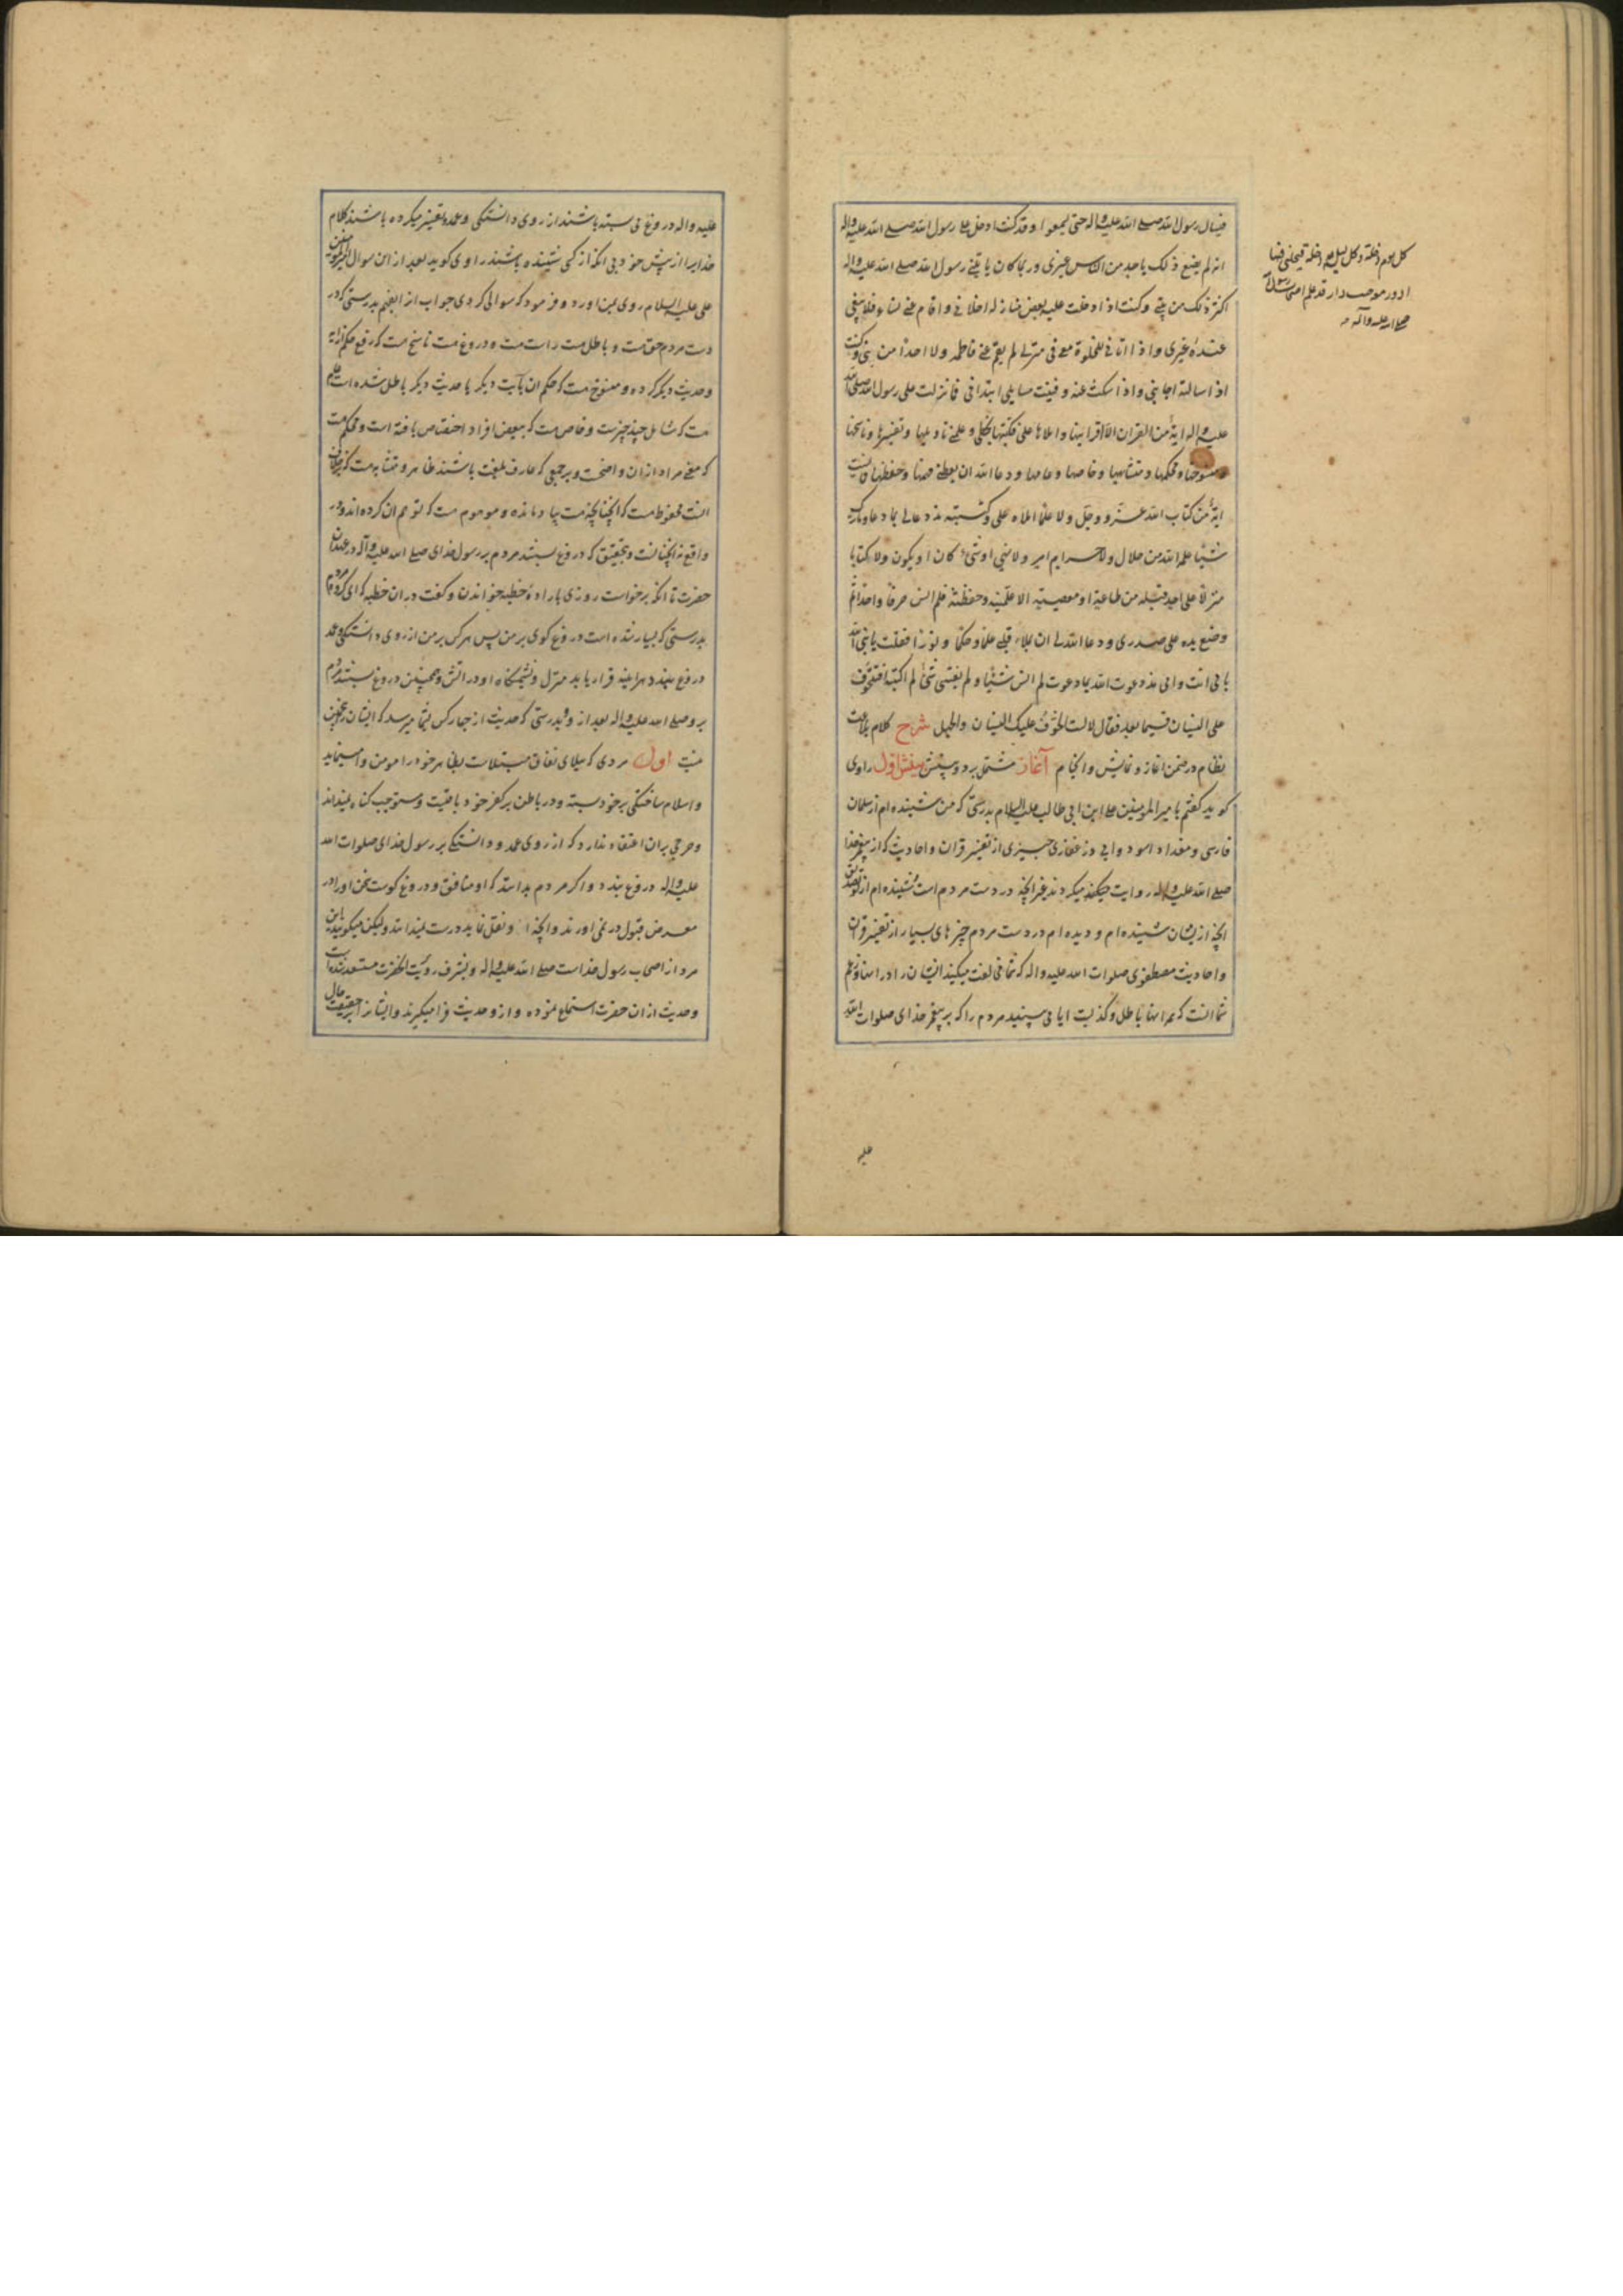 فیسال رسول الله صلی الله علیه و اله حتی یسمعوا و قد کنت ادخل علی رسول الله صلی الله علیه و اله
کل یوم دخلة و کل لیلة دخلة فیخلینی فیها
ادور معه حیث دار و قد علم اصحاب رسول الله
صلی الله علیه و آله
انه لم یصنع ذلک باحد من الناس غیری و ربما کان یاتینی رسول الله صلی الله علیه و اله
اکثر ذلک من بیتی و کنت اذا دخلت علیه بعض منازله اخلانی و اقام عنی نساءه فلا یبقی
عنده غیری و اذا اتانی للخلوة معی فی منزلی لم یقم عنی فاطمه و لا احدا من بنی و کنت
اذا سالته اجابنی و اذا سکت عنه و فنیت مسایلی ابتدانی فما نزلت علی رسول الله صلی الله
علیه و اله ایة من القران الا اقرانیها و املاها علی فکتبتها بخطی و علمنی تاویلها و تفسیرها و ناسخها
و منسوخها و محکمها و متشابهها و خاصها و عامها و دعا الله ان یعطینی فهمها و حفظها فما نسیت
ایة من کتاب الله عز و جل و لا علما املاه علی و کتبته منذ دعا لی بما دعا و ما ترک
شیئا علمه الله من حلال و لا حرام امر و لا نهی او شیء کان او یکون و لا کتابا
منزلا علی احد قبله من طاعة او معصیة الا علمنیه و حفظته فلم انس حرفا واحدا ثم
وضع یده علی صدری و دعا الله لی ان یملاء قلبی علما و حکما و نورا فقلت یا نبی الله
بابی انت و امی منذ دعوت الله بما دعوت لم انس شیئا و لم یفتنی شیء لم اکتبه افتتخوف
علی النسیان فیما بعد فقال لا لست اتخوف علیک النسیان و الجهل شرح کلام بلاغت
نظام در ضمن اغاز و نمایش و انجام آغاز مشتمل بر دو بینش بینش اول راوی
کوید کفتم با میر المومنین علی ابن ابی طالب علیه السلام بدرستی که من شنیده ام از سلمان
فارسی و مقداد اسود و ابی ذر غفاری چیزی از تفسیر قران و احادیث که از پیغمبر خدا
صلی الله علیه و اله روایت میکردند غیر انچه در دست مردم است و شنیده ام از تو تصدیق
انچه از یشان شنیده ام و دیده ام در دست مردم چیزهای بسیار از تفسیر قران
و احادیث مصطفوی صلوات الله علیه و اله که شما مخالفت میکنید ایشان را در اینها و زعم
شما انست که همه اینها باطل و کذبست ایا می بینید مردم را که بر پیغمبر خدای صلوات الله
علیه
علیه و اله دروغ می بسته باشند از روی دانستکی و عمد و تفسیر میکرده باشند کلام
خدا یرا از پیش خود بی انکه از کسی شنیده باشند راوی کوید بعد از این سوال امیر المومنین
علی علیه السلام روی بمن اورد و فرمود که سوالی کردی جواب انرا بفهم بدرستی که در
دست مردم حق ست و باطل ست و راست ست و دروغ ست و ناسخ ست که رفع حکم ایه
و حدیث دیکر کرده و منسوخ ست که حکم ان بایت دیکر یا حدیث دیکر باطل شده است و عام
ست که شامل چند چیزست و خاص ست که ببعض افراد اختصاص یافته است و محکم ست
که معنی مراد ازان واضحست و بر جمعی که عارف بلغت باشند ظاهر و متشابه ست که بر خلاف
انست و محفوظ ست که انچنانچه ست بیاد مانده و موهوم ست که توهم ان کرده اند و در
واقع نه انچنانست و بتحقیق که دروغ بستند مردم بر رسول خدای صلی الله علیه و آله در عهد ان
حضرت تا انکه برخواست روزی باراده خطبه خواندن و کفت در ان خطبه که ای کروه مردم
بدرستی که بسیار شده است دروغ کوی بر من پس هر کس بر من از روی دانستکی و عمد
دروغ ببندد هراینه قرار یابد منزل و نشیمنکاه او در اتش و همچنین دروغ بستند مردم
برو صلی الله علیه و اله بعد از و بدرستی که حدیث از چهار کس بشما میرسد که ایشان را پنجمین
نیست اول مردی که مبتلای نفاق مبتلاست بظاهر خود را مومن وا مینماید
و اسلام ساختکی بر خود بسته و در باطن بر کفر خود باقیست و مستوجب کناه نمیداند
و حرجی بران اعتقاد ندارد که از روی عمد و دانستکی بر رسول خدای صلوات الله
علیه و اله دروغ بندد و اکر مردم بدانند که او منافق و دروغ کوست سخن او را در
معرض قبول در نمی اورند و انچه او نقل نماید درست نمیدانند و لیکن میکویند این
مرد از اصحاب رسول خداست صلی الله علیه و اله و بشرف رویت انحضرت مستعد شده است
و حدیث ازان حضرت استماع نموده و ازو حدیث فرا میکیرند و ایشانرا بر حقیقت حال